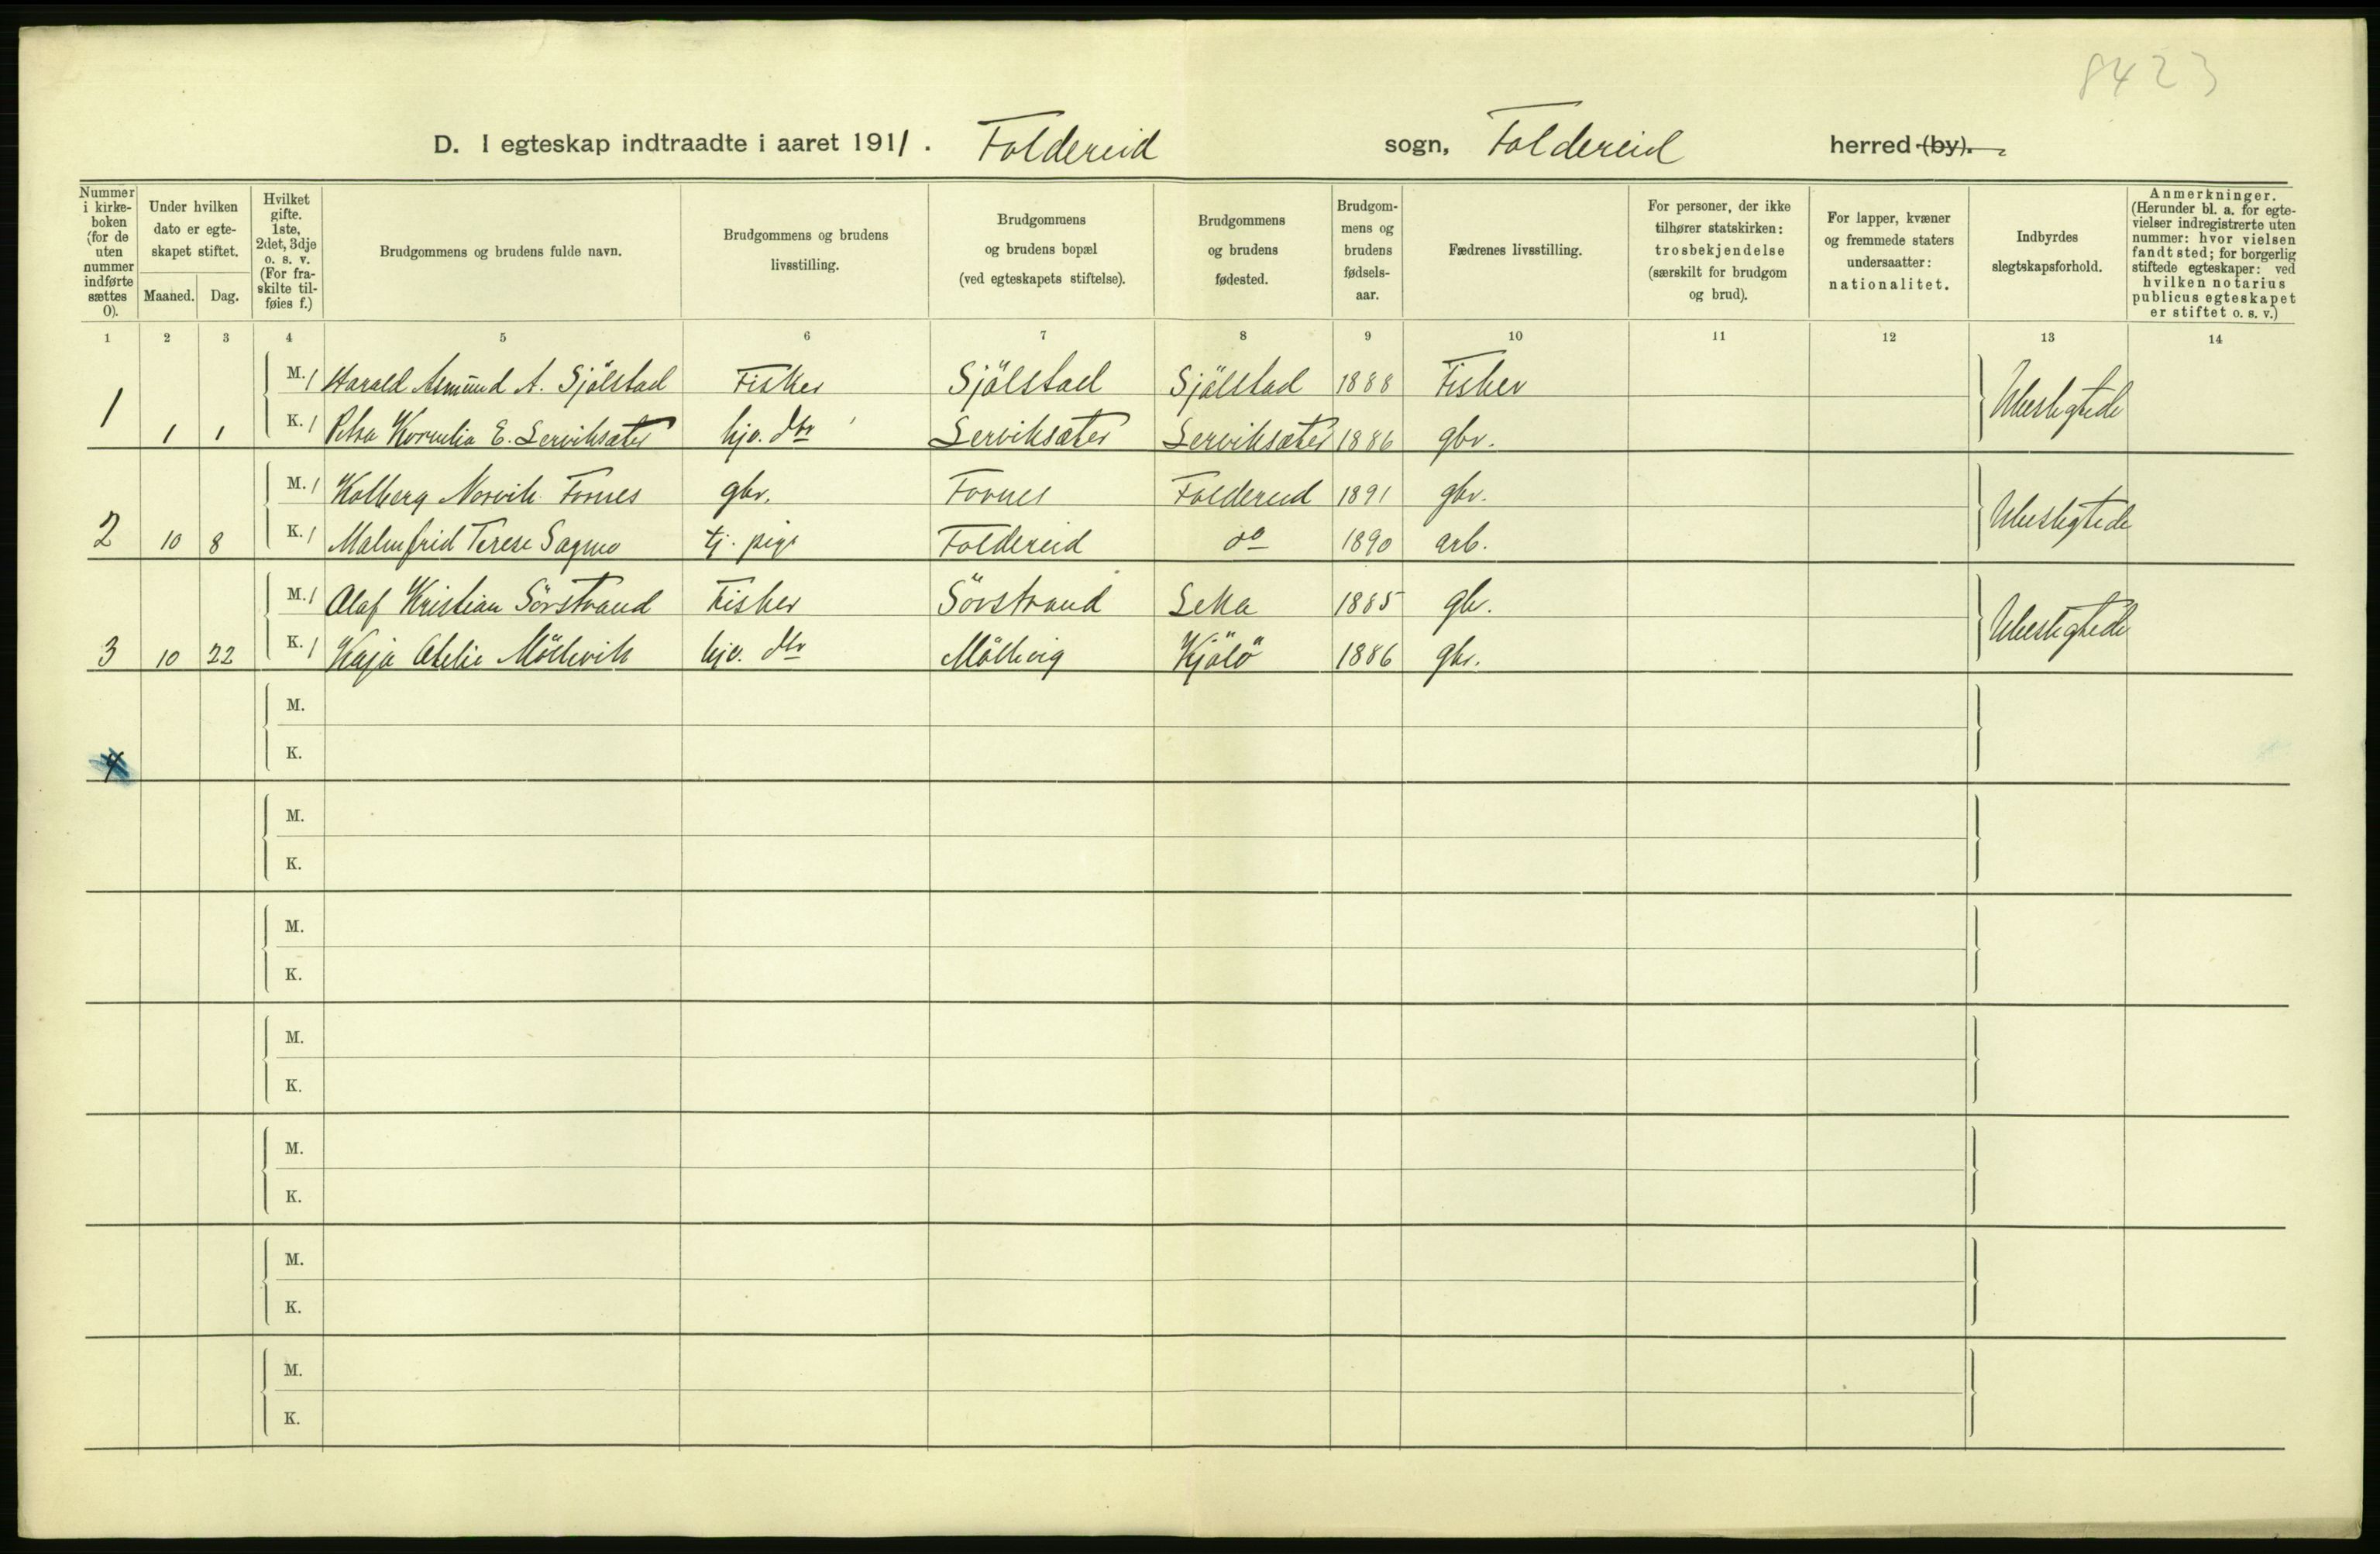 8423
D. I egteskap indtraadte i aaret 1911. Foldereid sogn, Foldereid herred (by).
Nummer i kirkeboken (for de uten nummer indførte sættes 0).
Under hvilken dato er egteskapet stiftet.
Maaned. Dag.
Hvilket gifte. 1ste, 2det, 3dje o. s. v. (For fraskilte tilføies f.)
Brudgommens og brudens fulde navn.
Brudgommens og brudens livsstilling.
Brudgommens og brudens bopæl (ved egteskapets stiftelse).
Brudgommens og brudens fødested.
Brudgommens og brudens fødselsaar.
Fædrenes livsstilling.
For personer, der ikke tilhører statskirken: trosbekjendelse (særskilt for brudgom og brud).
For lapper, kvæner og fremmede staters undersaatter: nationalitet.
Indbyrdes slegtskapsforhold.
Anmerkninger. (Herunder bl. a. for egtevielser indregistrerte uten nummer: hvor vielsen fandt sted; for borgerlig stiftede egteskaper: ved hvilken notarius publicus egteskapet er stiftet o. s. v.)
1 2 3 4 5 6 7 8 9 10 11 12 13 14
M. 1 Harald Asmund A. Sjölstad Fisker Sjölstad Sjölstad 1888 Fisker Ubeslegtede
1 1 1 K. 1 Petra Kornelia E. Serviksæter hjv. dtr Serviksæter Serviksæter 1886 gbr.
M. 1 Kolberg Norvik Fornes gbr. Fornes Foldereid 1891 gbr. Ubeslegtede
2 10 8 K. 1 Malmfrid Terese Sagmo tj. pige Foldereid do 1890 arb.
M. 1 Olaf Kristian Sörstrand Fisker Sörstrand Leka 1885 gbr. Ubeslegtede
3 10 22 K. 1 Kaja Otelie Möllevik hjv. dtr Möllevig Kjölö 1886 gbr.
M.
4 K.
M.
K.
M.
K.
M.
K.
M.
K.
M.
K.
M.
K.